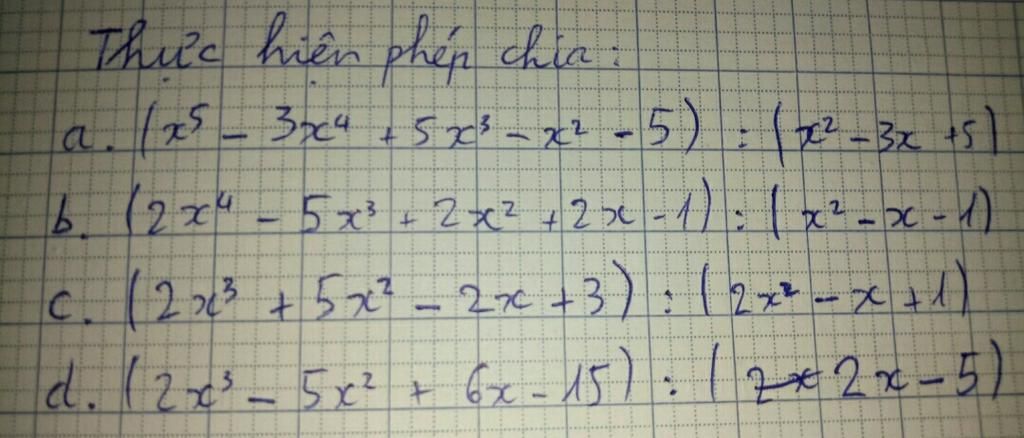 Thực hiện phép chia:
a. (x⁵ - 3x⁴ + 5x³ - x² - 5) : (x² - 3x + 5)
b. (2x⁴ - 5x³ + 2x² + 2x - 1) : (x² - x - 1)
c. (2x³ + 5x² - 2x + 3) : (2x² - x + 1)
d. (2x³ - 5x² + 6x - 15) : (2x - 5)